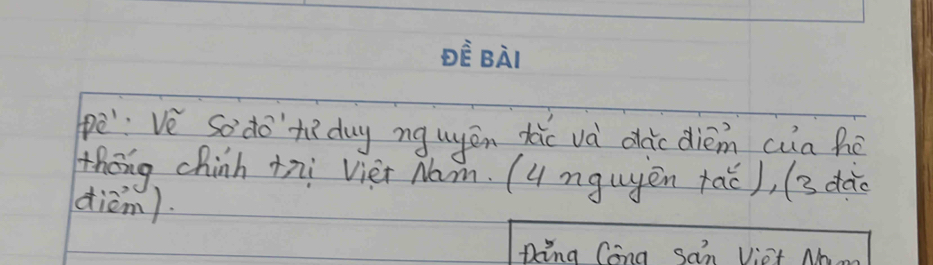 ĐỀ BÀI
Đề: Vẽ Sơ đồ tư duy nguyên tắc và đặc điểm của hệ
thống chính trị Việt Nam. (4 nguyên tắc), (3 đặc
điểm).
Đảng Cộng sản Việt Nam